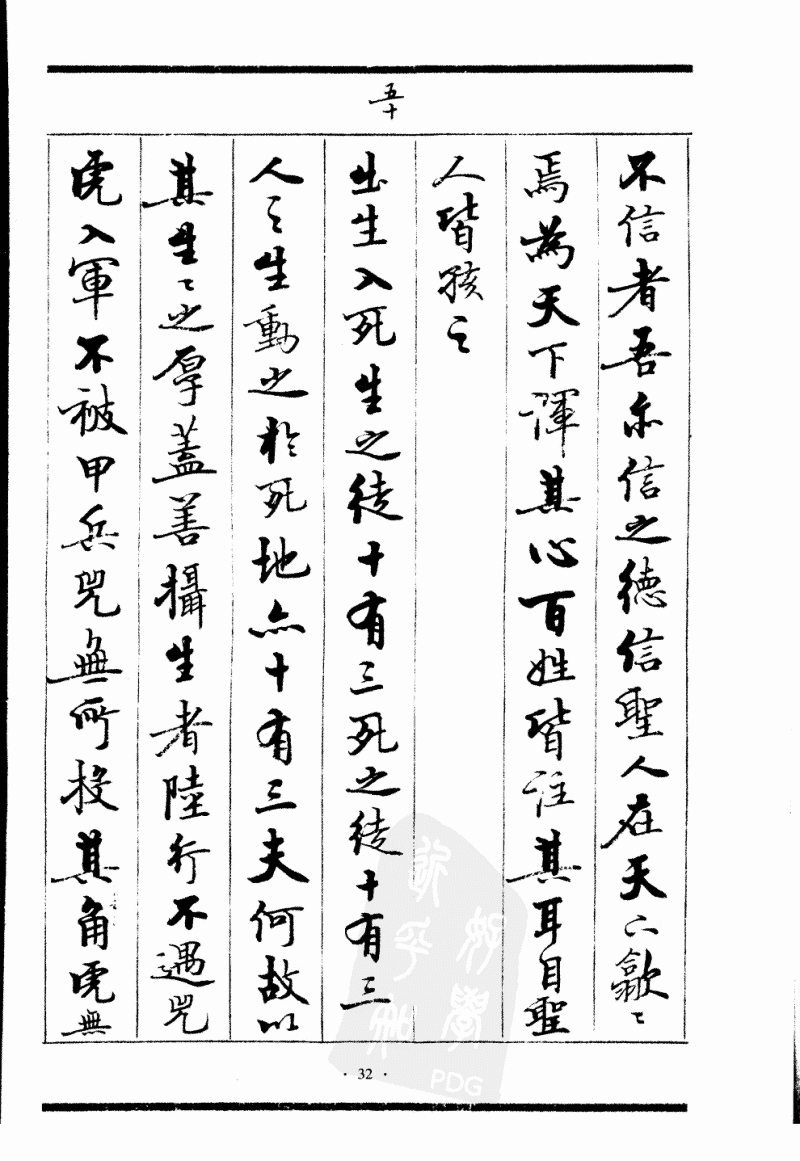 五十
不信者吾亦信之德信聖人在天下歙々
焉為天下渾其心百姓皆注其耳目聖
人皆孩之
出生入死生之徒十有三死之徒十有三
人之生動之於死地亦十有三夫何故以
其生々之厚蓋善攝生者陸行不遇兕
虎入軍不被甲兵兕無所投其角虎無
· 32 ·
PDG